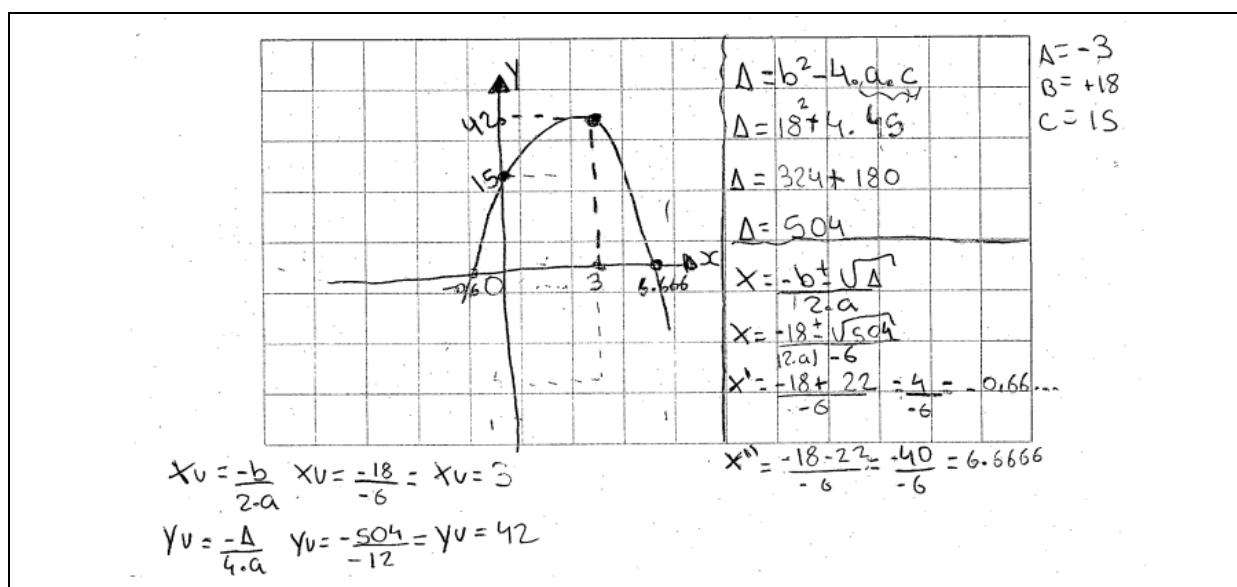 Y
42
15
-0,6 0 3 6.666 x
Δ = b² - 4.a.c
Δ = 18² + 4. 45
Δ = 324 + 180
Δ = 504
X = -b ± √Δ / 2.a
X = -18 ± √504 / (2.a) -6
X' = -18 + 22 / -6 = 4 / -6 = - 0,66...
X'' = -18 - 22 / -6 = -40 / -6 = 6.6666
A = -3
B = +18
C = 15
Xv = -b / 2.a Xv = -18 / -6 = Xv = 3
Yv = -Δ / 4.a Yv = -504 / -12 = Yv = 42